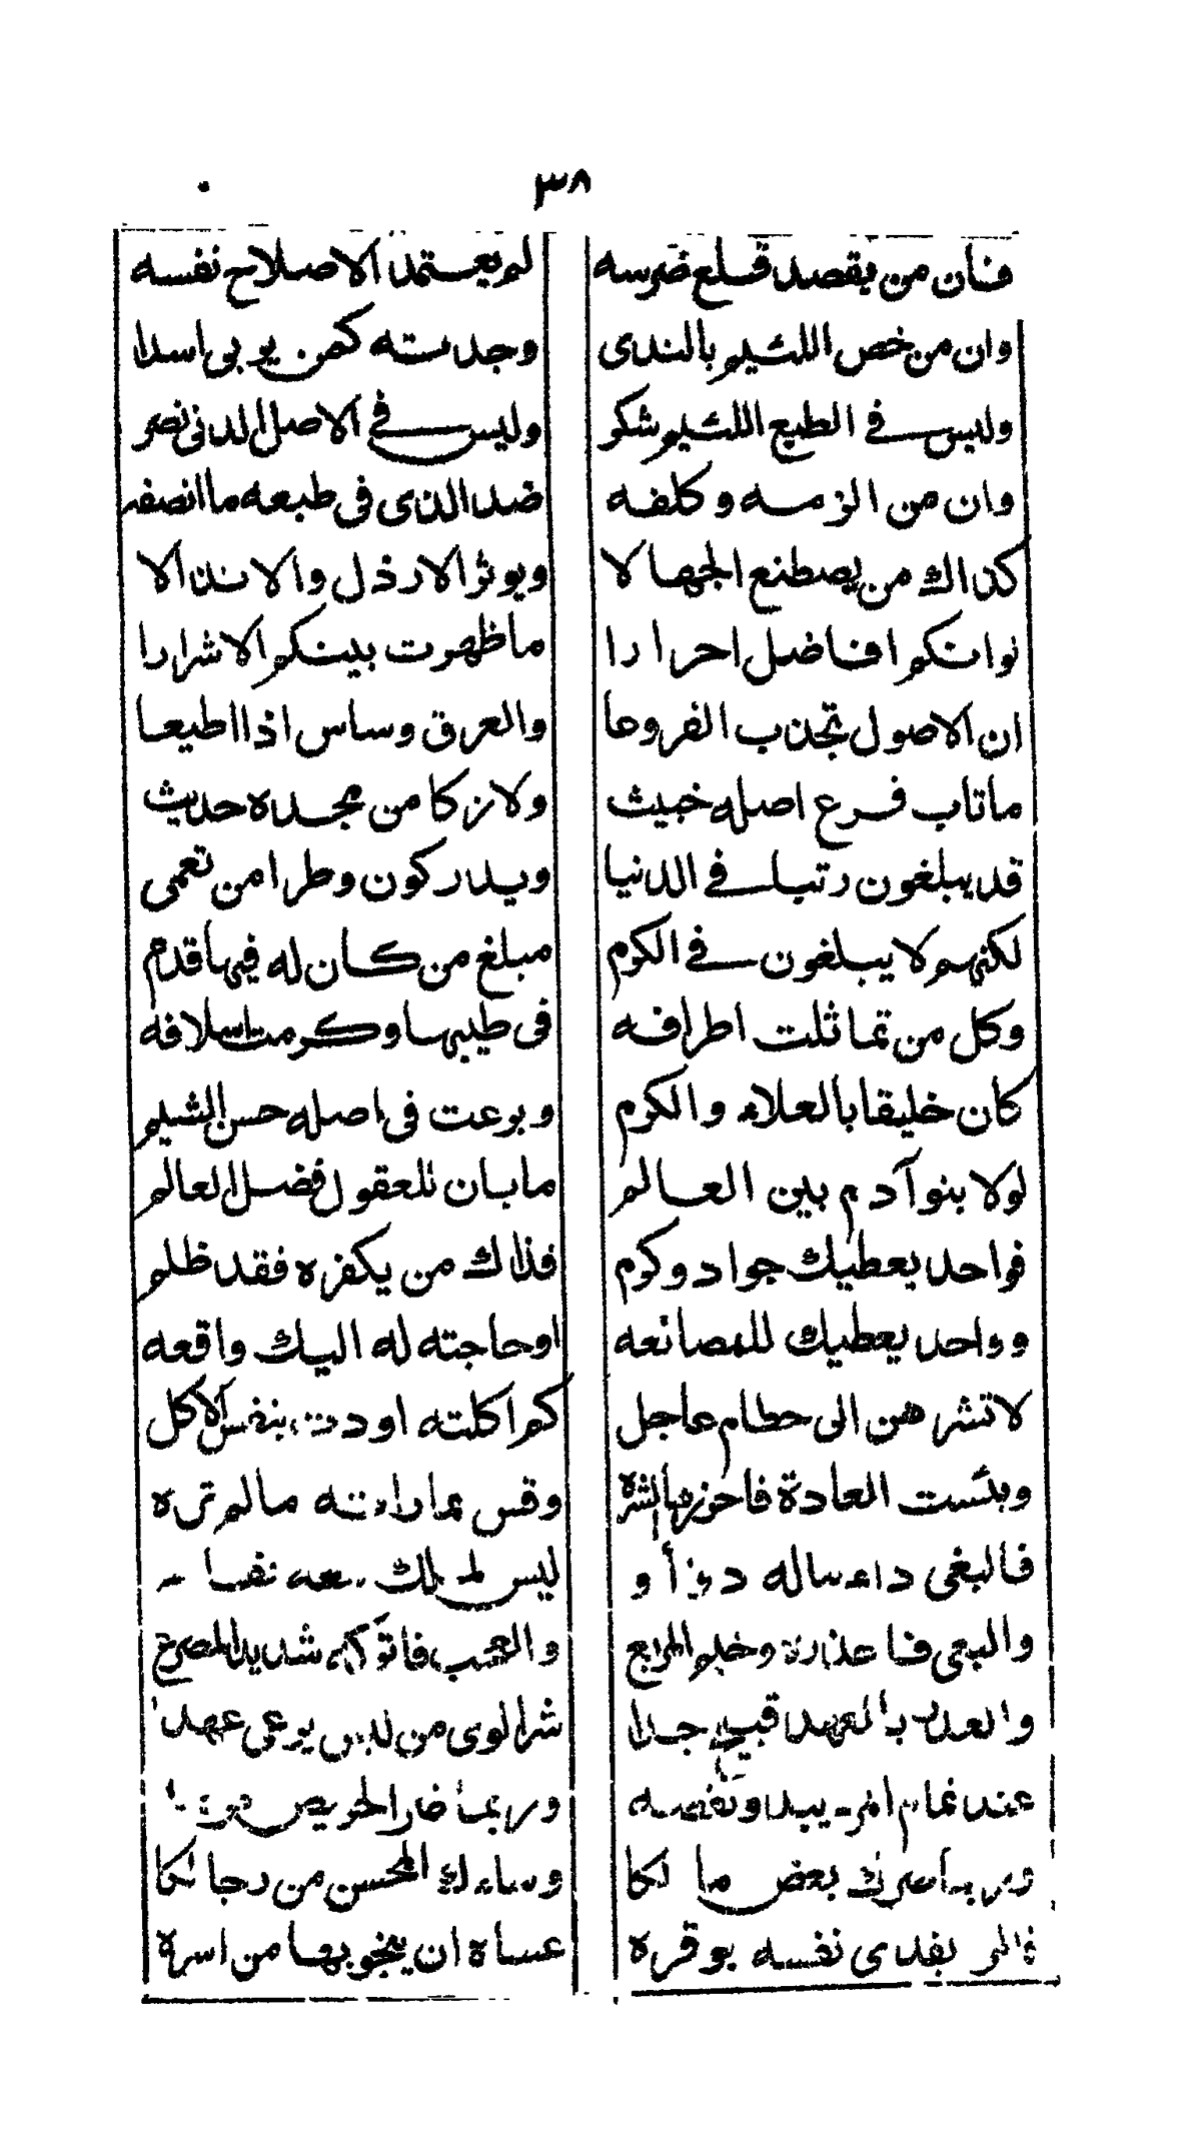 ٣٨
فان من يقصد قلع ضرسه لم يعتمد الا صلاح نفسه
وان من خص اللئيم بالندى وجدته كمن يربى اسدا
وليس في الطبع اللئيم شكر وليس في الاصل الدنى نصر
وان من الزمه وكلفه ضد الذى فى طبعه ما انصفه
كذاك من يصطنع الجهالا ويوثر الارذل والانذالا
لوانكم افاضل احرارا ما ظهرت بينكم الاشرارا
ان الاصول تجذب الفروعا والعرق وساس اذا اطيعا
ماتاب فرع اصله خبيث ولا زكا من مجده حديث
قد يبلغون رتبا في الدنيا ويدركون وطرا من نعمى
لكنهم لا يبلغون في الكرم مبلغ من كان له فيها قدم
وكل من تماثلت اطرافه فى طيبها وكرمت اسلافه
كان خليقا بالعلاء والكرم وبرعت فى اصله حسن الشيم
لولا بنو آدم بين العالم ما بان للعقول فضل العالم
فواحد يعطيك جواد وكرم فذاك من يكفره فقد ظلم
وواحد يعطيك للمصانعه او حاجته له اليك واقعه
لا تشرهن الى حطام عاجل كم اكلته اودت بنفس الاكل
وبئست العادة فاحزنها الشره وقس بما رايته مالم تره
فالبغى داء ماله دوأ و ليس لملك معه
والبغى فاعذاره وخيم المربع والعجب فاتركه شديد المصرع
والعدر بالعهد قبيح جدا شر الورى من ليس يرعى عهدا
عند تمام المر يبدو نقصه وربما ضر الحريص
وربما سرك بعض ما لكا وساءك المحسن من رجالكا
فالمر يفدى نفسه بوقره عساه ان ينجو بها من اسره